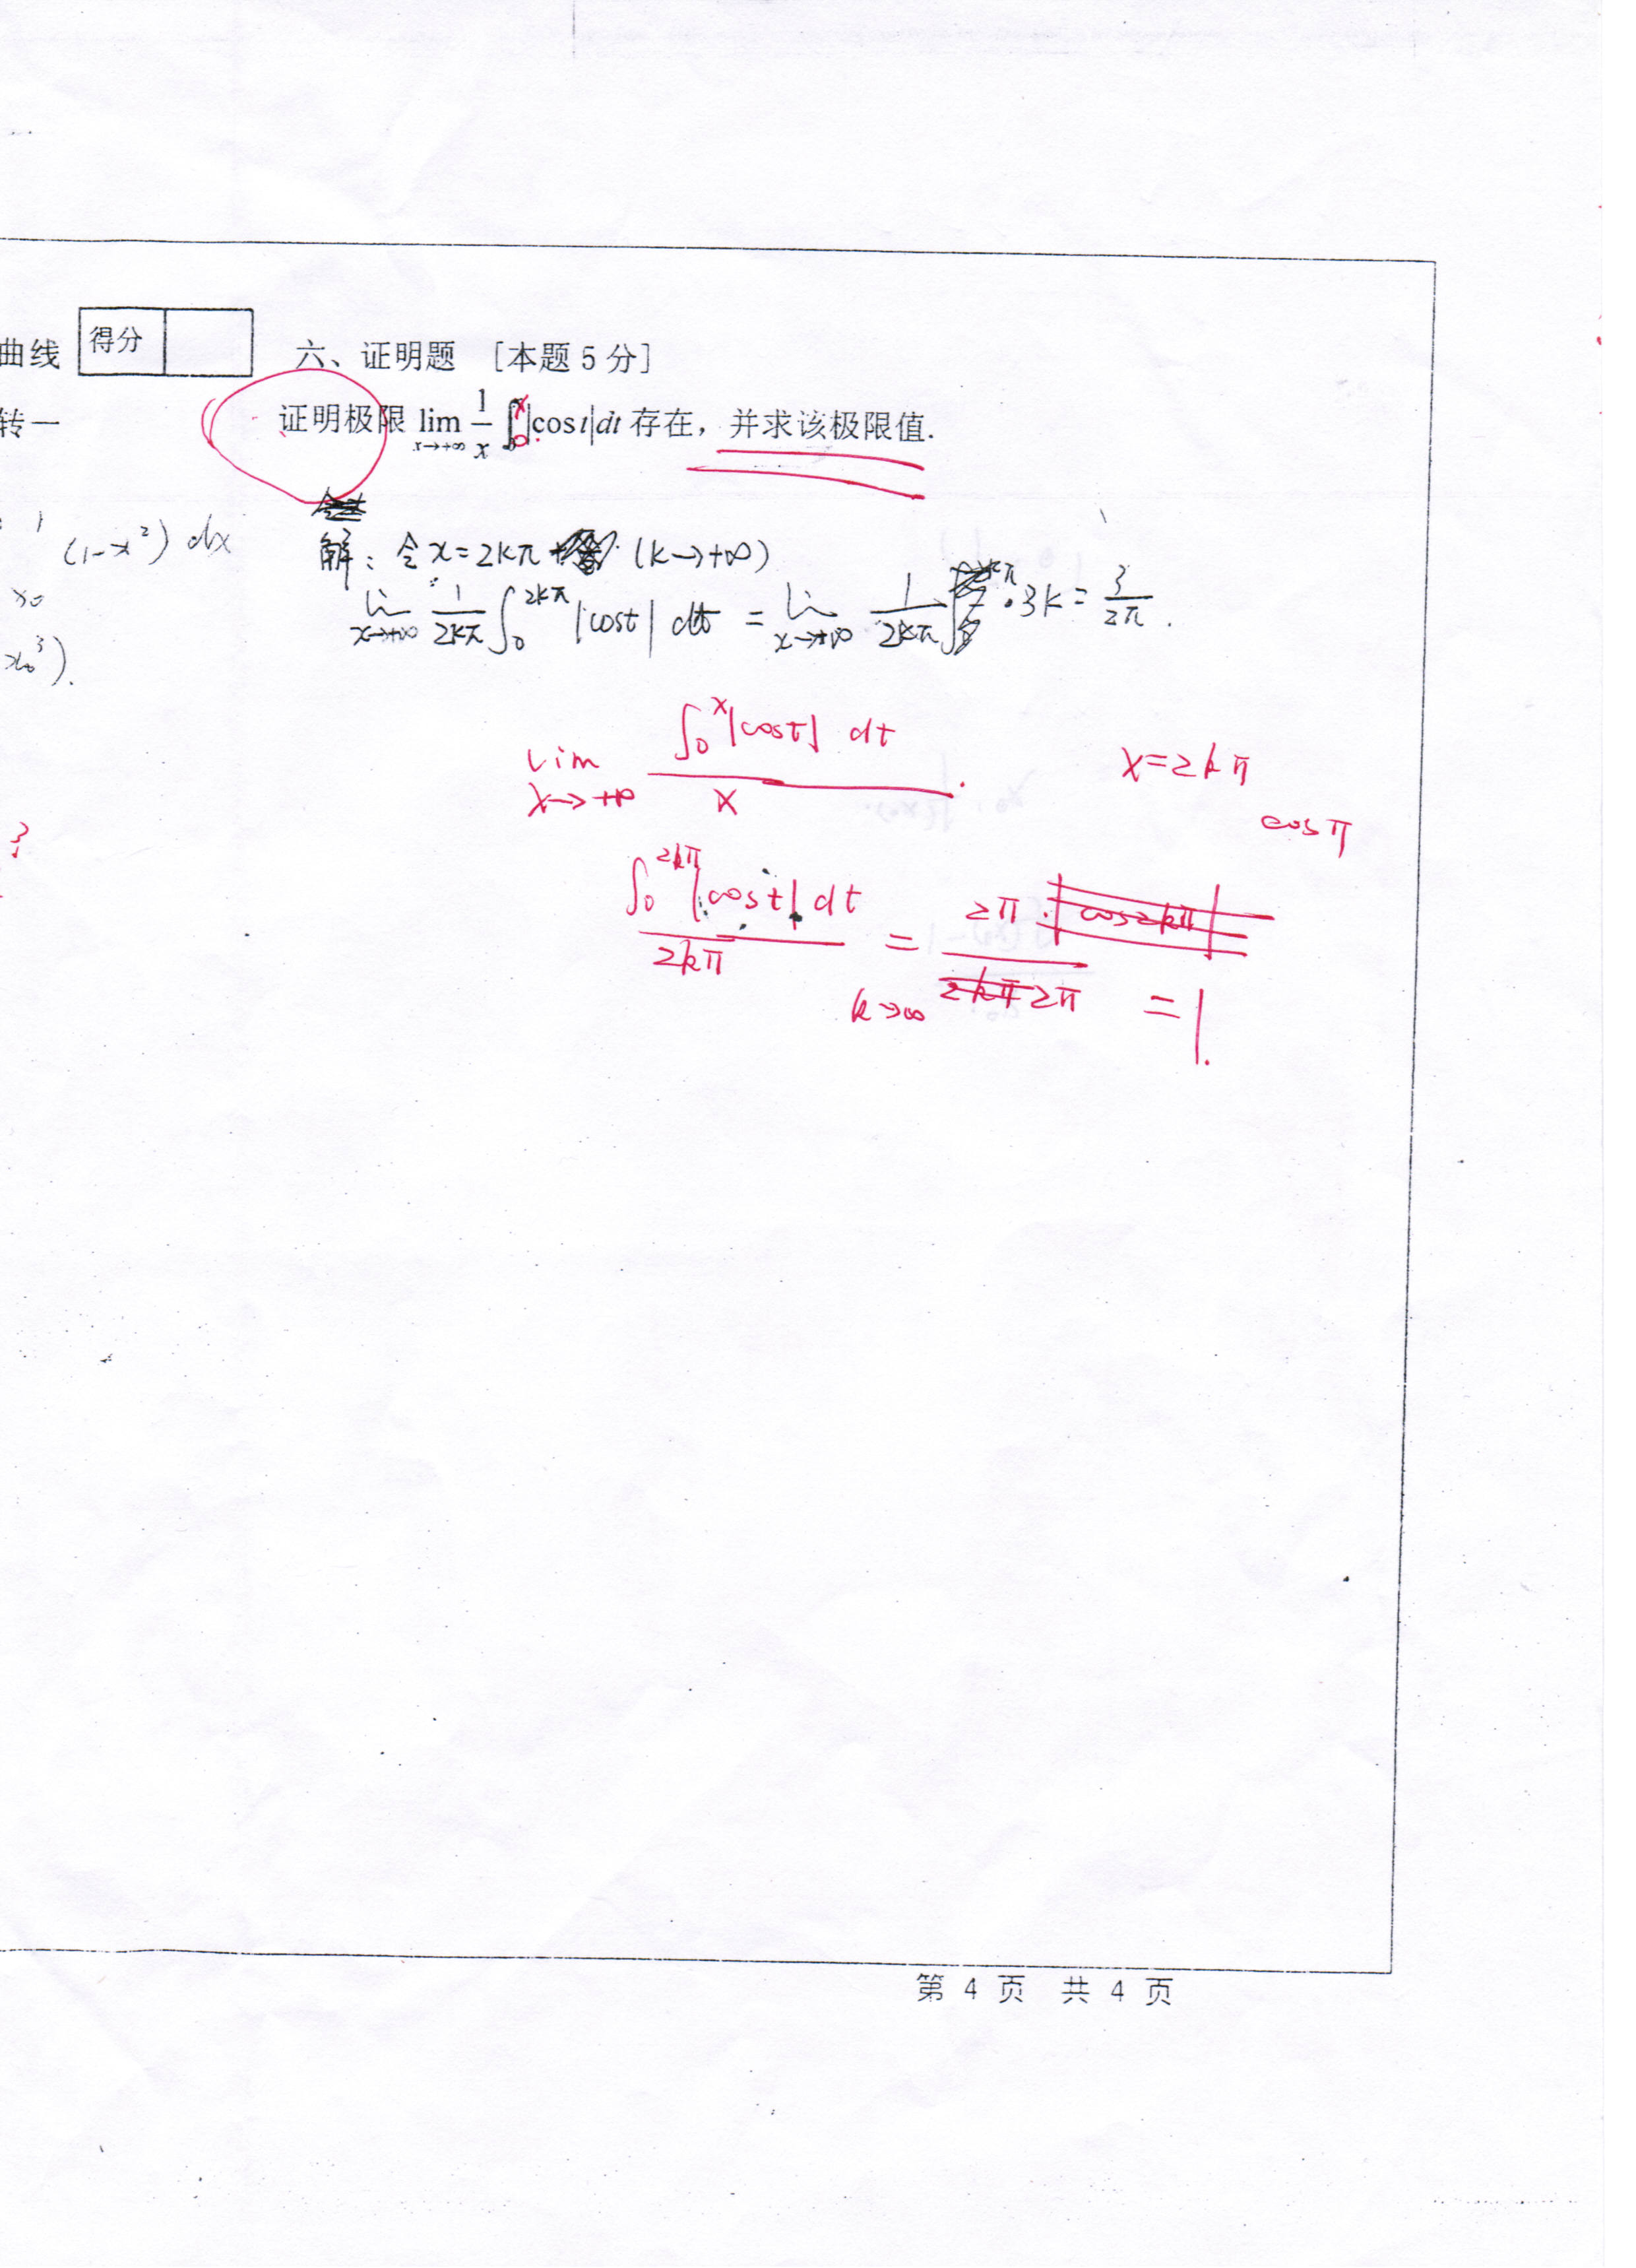 曲线
转一
得分
六、证明题 [本题 5 分]
证明极限 lim x→+∞ 1/x ∫₀ˣ |cos t| dt 存在，并求该极限值.
(1-x²) dx
x₀
x₀³).
解：令 x=2kπ (k→+∞)
lim x→+∞ 1/2kπ ∫₀^2kπ |cost| dt = lim x→+∞ 1/2kπ · 3k = 3/2π .
lim x→+∞ ∫₀ˣ |cost| dt / x .
x=2kπ
cosπ
∫₀^2kπ |cost| dt / 2kπ = k→∞ 2π · |cos2kπ| / 2kπ 2π = 1.
第 4 页 共 4 页